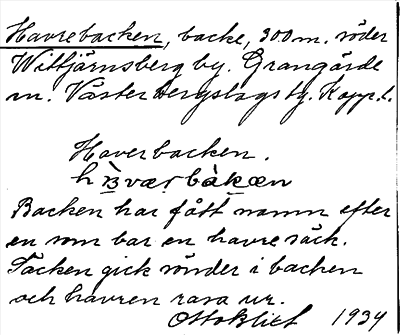 Havrebacken, backe, 300 m. söder
Wittjärnsberg by. Grangärde
sn. Västerbergslags tg. Kopp. l.
Haverbacken.
Backen har fått namn efter
en som bar en havresäck.
Säcken gick sönder i backen
och havren rasa ur.
Otto Blixt 1934